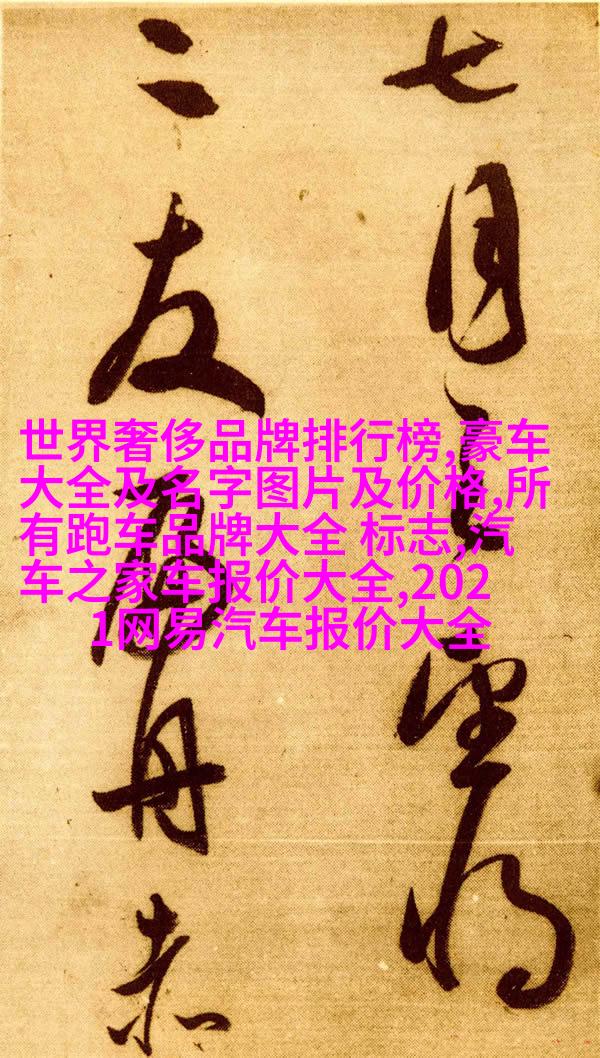 七月望将
二友舟赤
世界奢侈品牌排行榜,豪车
大全及名字图片及价格,所
有跑车品牌大全 标志,汽
车之家车报价大全,202
1网易汽车报价大全